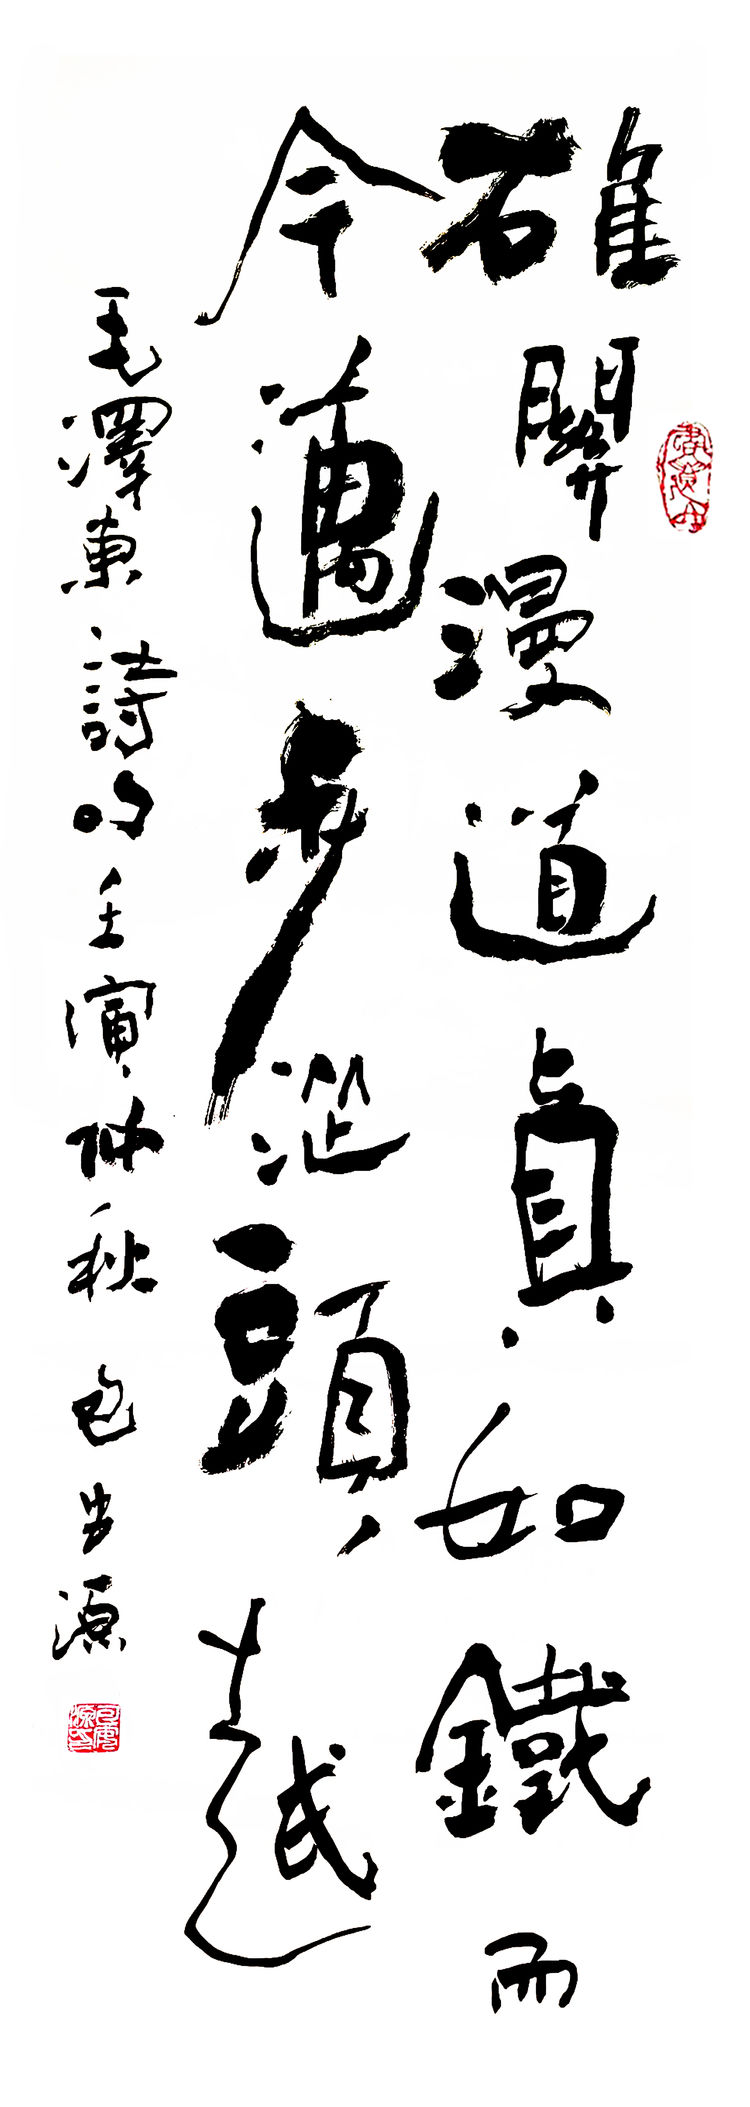 雄關漫道真如鐵而
今邁步從頭越
毛澤東詩句 壬寅仲秋 包 源